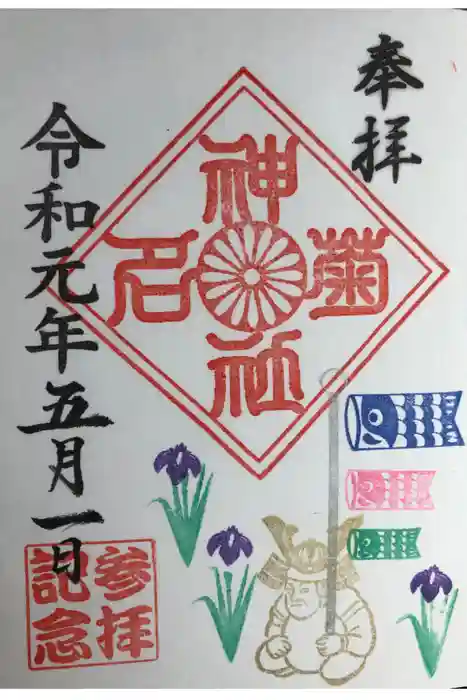 奉拝
菊名神社
令和元年五月一日
参拝
記念